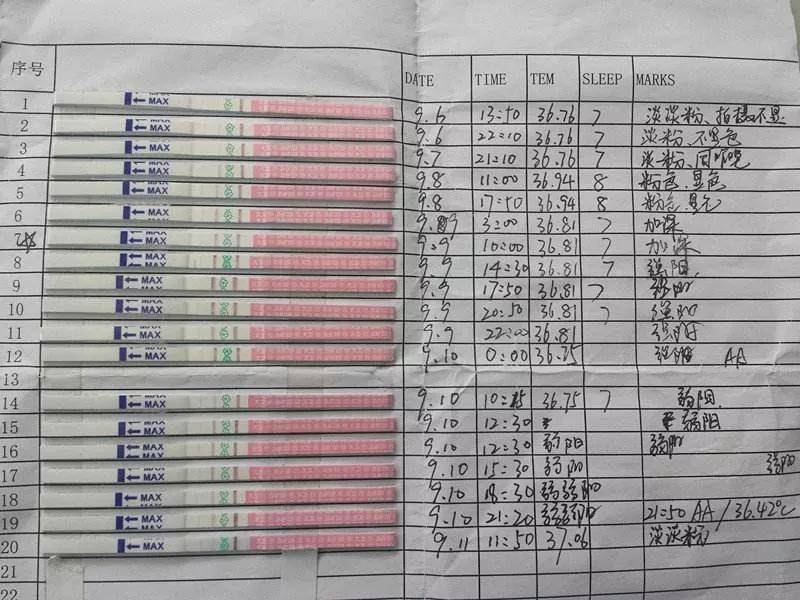 序号 DATE TIME TEM SLEEP MARKS
1 MAX 9.6 13:50 36.76 7 淡淡粉、拍摄不显
2 MAX 9.6 22:10 36.76 7 淡粉、不显色
3 MAX 9.7 21:10 36.76 7 淡粉、同昨晚
4 MAX 9.8 11:00 36.94 8 粉色.显色
5 MAX 9.8 17:50 36.94 8 粉色.显色
6 MAX 9.9 3:00 36.81 7 加深
7☆ MAX 9.9 10:00 36.81 7 加深
8 MAX 9.9 14:30 36.81 7 强阳.
9 MAX 9.9 17:50 36.81 7 强阳
10 MAX 9.9 20:50 36.81 7 强阳
11 MAX 9.9 22:00 36.81 强阳
12 MAX 9.10 0:00 36.75 强阳 AA
13
14 MAX 9.10 10:25 36.75 7 弱阳
15 MAX 9.10 12:30 弱阳
16 MAX 9.10 12:30 弱阳 弱阳
17 MAX 9.10 15:30 弱阳 弱阳
18 MAX 9.10 18:30 弱弱阳
19 MAX 9.10 21:20 弱弱阳 21:50 AA / 36.42℃
20 MAX 9.11 11:50 37.06 淡淡粉
21
22